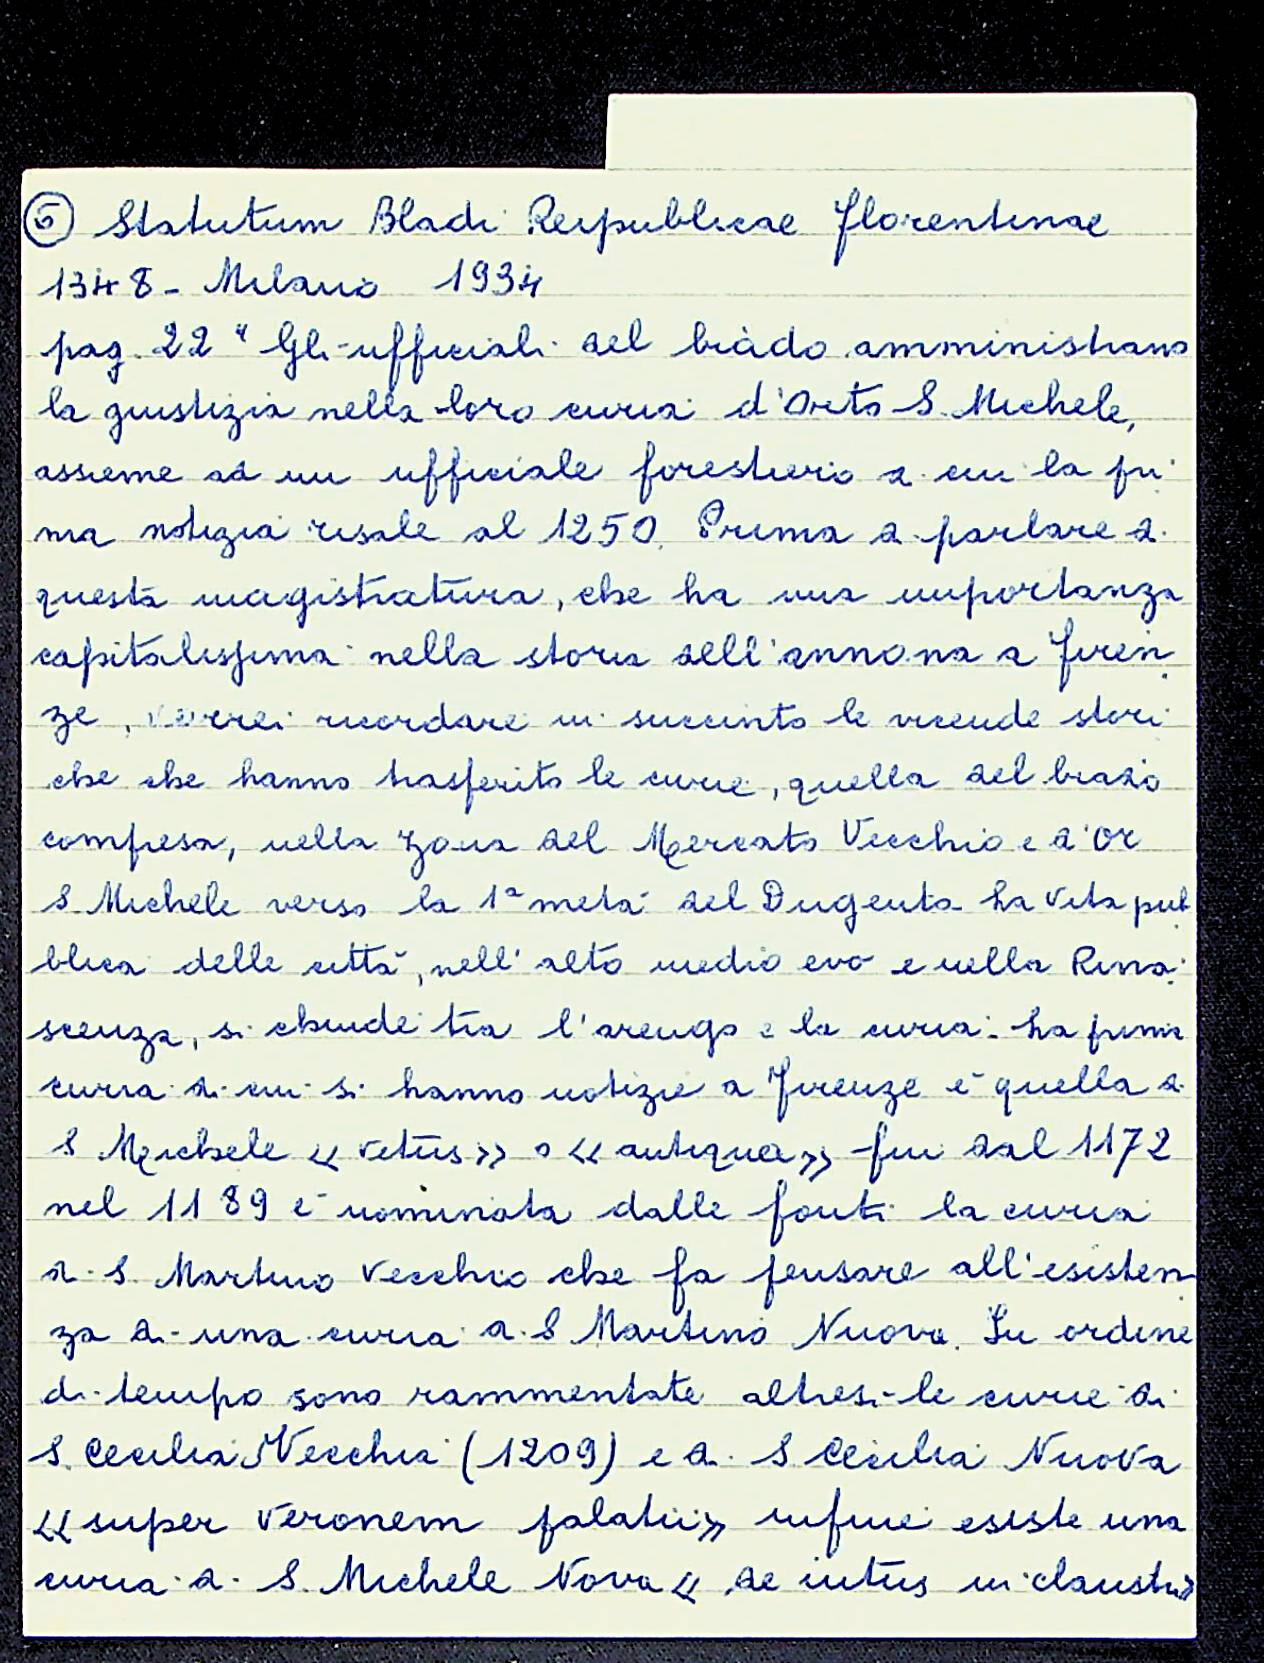 ⑤ Statutum Bladi Reipublicae Florentinae
1348 - Milano 1934
pag. 22 " Gli ufficiali del biado amministrano
la giustizia nella loro curia d'Orto S. Michele,
assieme ad un ufficiale forestiero di cui la pri
ma notizia risale al 1250. Prima di parlare di
questa magistratura, che ha una importanza
capitalissima nella storia dell'annona a Firen
ze, vorrei ricordare in succinto le vicende stori
che che hanno trasferito le curie, quella del biado
compresa, nella zona del Mercato Vecchio e d'Or
S. Michele verso la 1ª metà del Dugento. La vita pub
blica delle città, nell'alto medio evo e nella Rina
scenza, si chiude tra l'arengo e la curia. La prima
curia di cui si hanno notizie a Firenze è quella di
S Michele « vetus » o « antiqua » fin dal 1172
nel 1189 è nominata dalle fonti la curia
di S. Martino Vecchio che fa pensare all'esisten
za di una curia di S Martino Nuovo. In ordine
di tempo sono rammentate altresì le curie di
S. Cecilia Vecchia (1209) e di S Cecilia Nuova
« super Veronem palatii » infine esiste una
curia di S. Michele Nova « de intus in claustro »